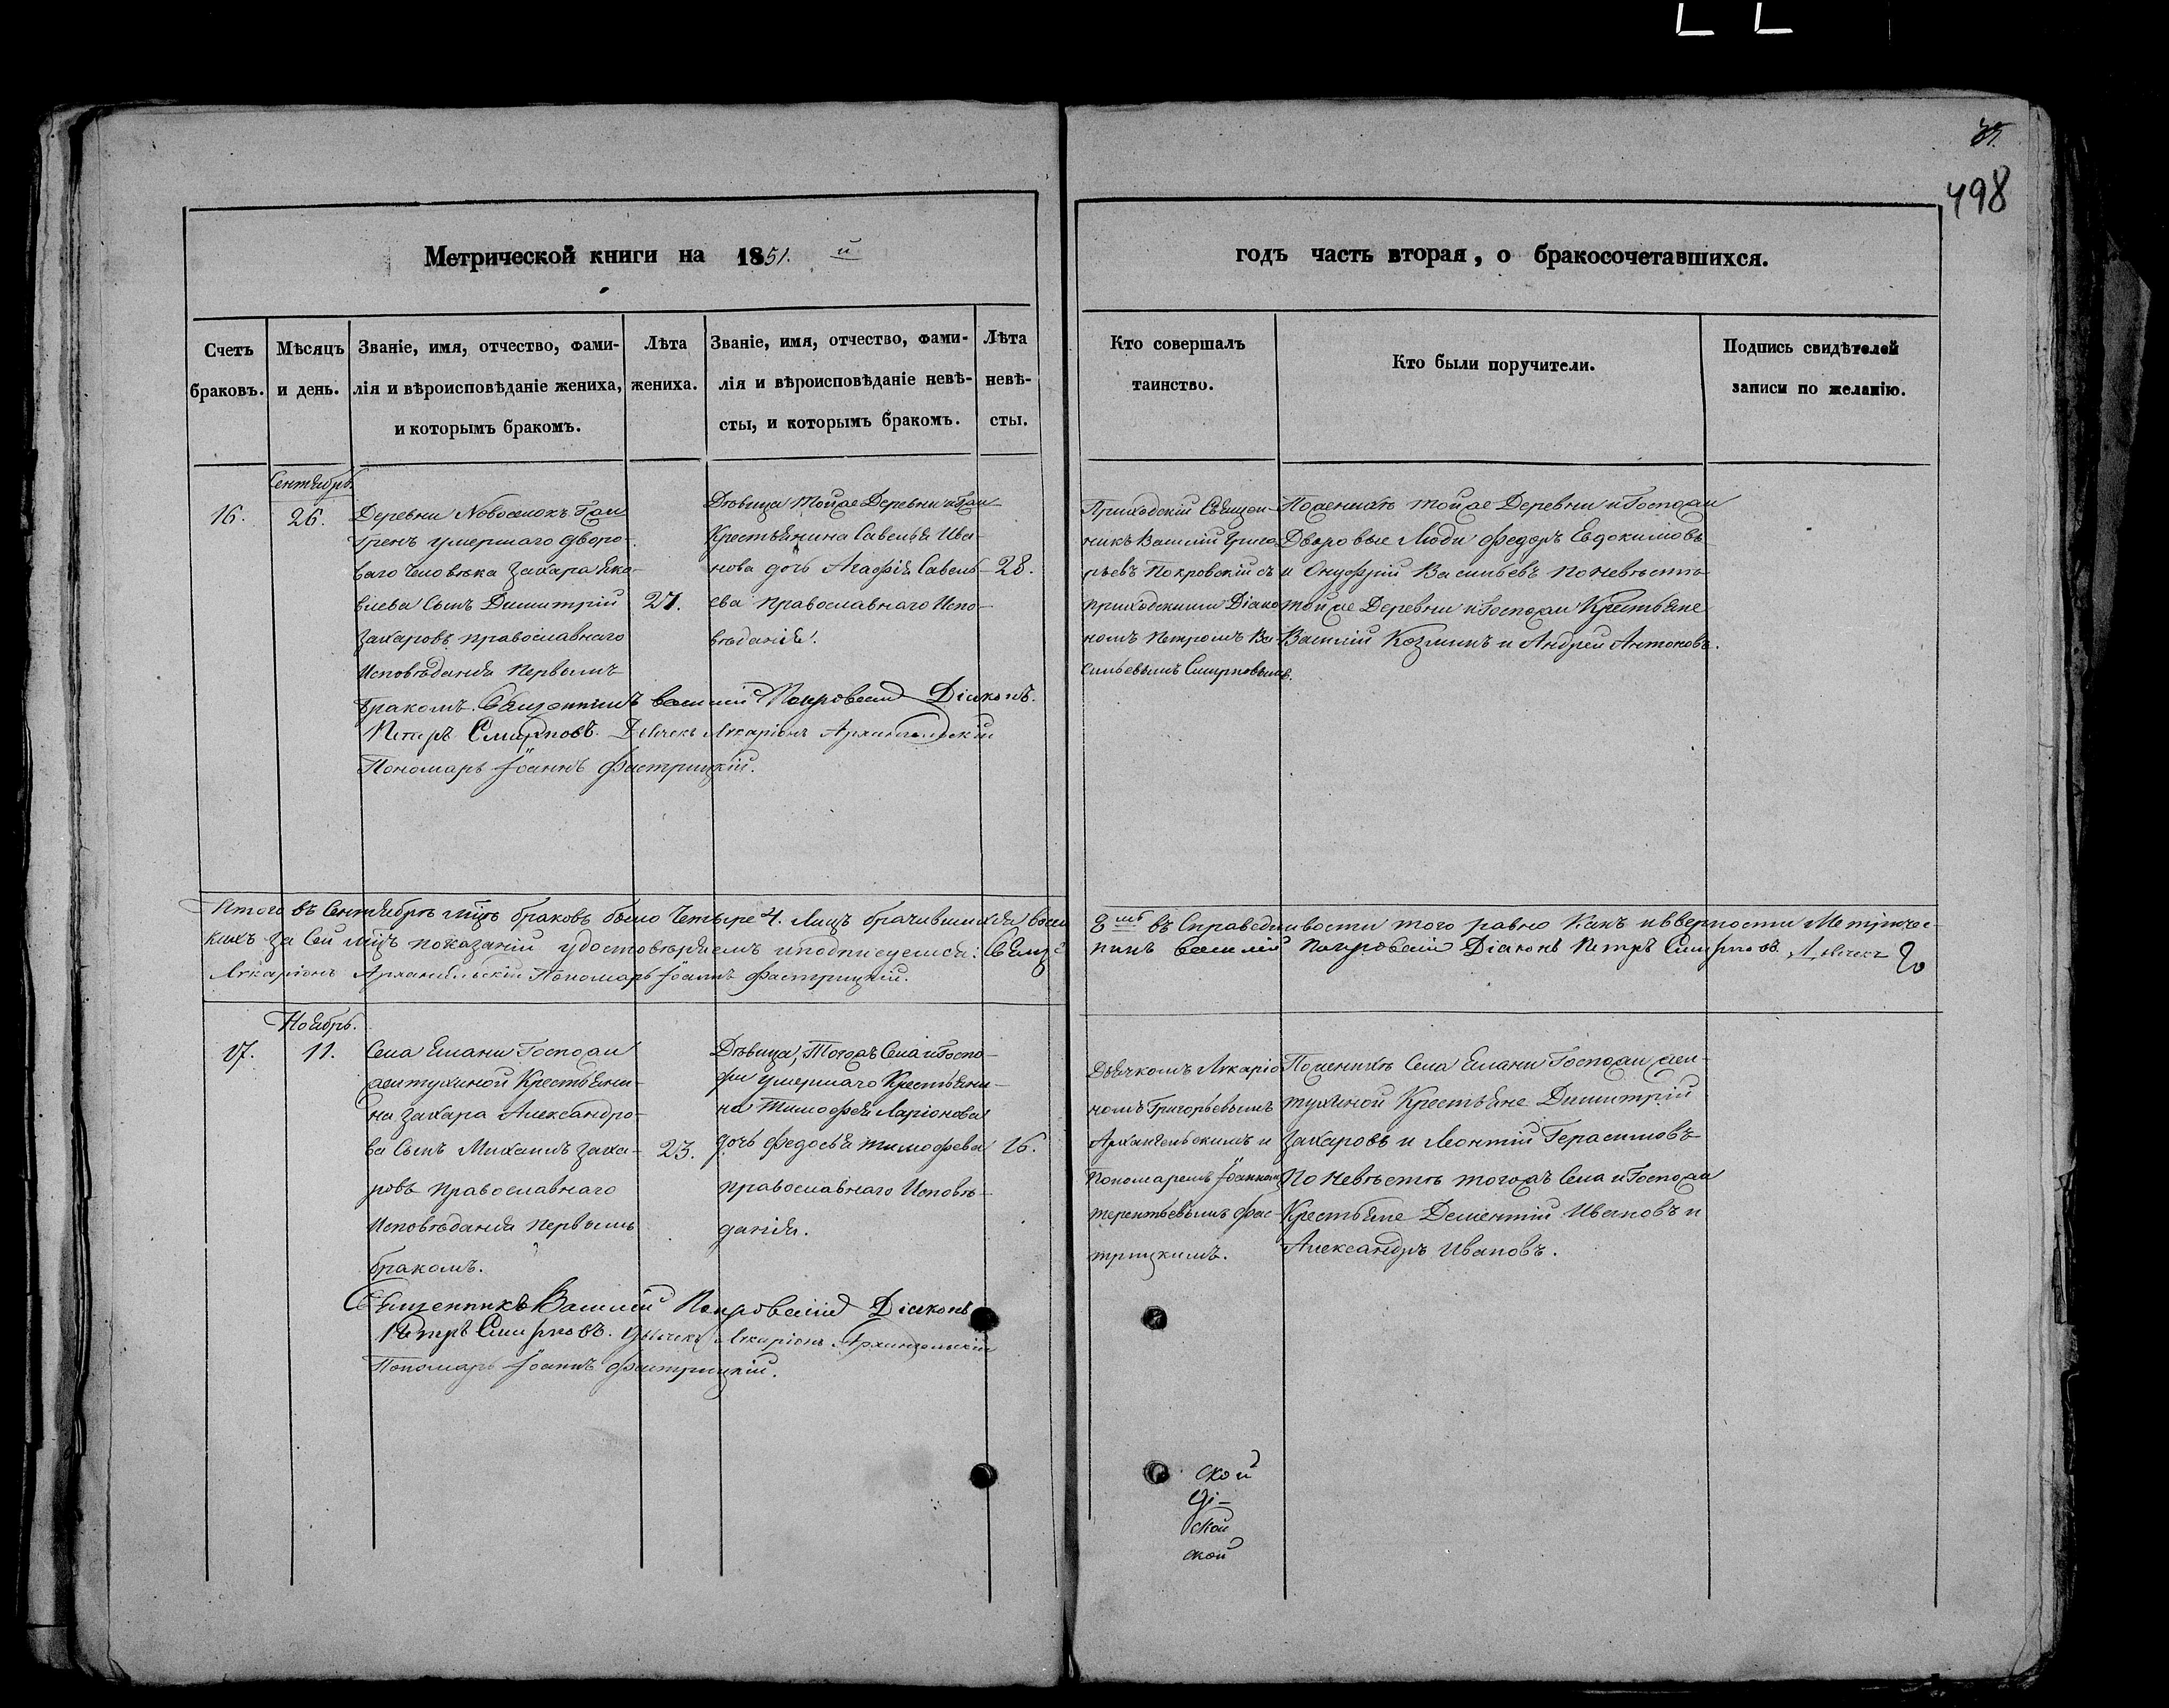 37.
498
Метрической книги на 1851. й
годъ часть вторая, о бракосочетавшихся.
Счетъ браковъ.
Мѣсяцъ и день.
Званіе, имя, отчество, фами-
лія и вѣроисповѣданіе жениха,
и которымъ бракомъ.
Лѣта
жениха.
Званіе, имя, отчество, фами-
лія и вѣроисповѣданіе невѣ-
сты, и которымъ бракомъ.
Лѣта
невѣ-
сты.
Кто совершалъ
таинство.
Кто были поручители.
Подпись свидѣтелей
записи по желанію.
Сентябрь.
16.
26.
Деревни Новоселокъ Гжи
умершаго дворо-
ваго человѣка Захара Яко-
влева Сынъ Димитрій
Захаровъ православнаго
Исповѣданія первымъ
бракомъ.
27.
Дѣвица тойже Деревни и Гжи
Крестьянина Савелья Ива-
нова дочь Агафія Савель-
ева православнаго Испо-
вѣданія.
28.
Приходскій Священ-
никъ Василій Григо-
рьевъ Покровскій съ
приходскими Діако-
номъ Петромъ Ва-
сильевымъ Смирновымъ.
По женихѣ тойже Деревни и Госпожи
Дворовые Люди Федоръ Евдокимовъ
и Онуфрій Васильевъ по невѣстѣ
тойже Деревни и Госпожи Крестьяне
Василій Козминъ и Андрей Антоновъ.
Священникъ Василій Покровскій Діаконъ
Петръ Смирновъ. Дьячекъ Иларіонъ Архангельскій
Пономарь Іоаннъ Фастрицкій.
Итого въ Сентябрѣ мцѣ браковъ было Четыре 4. Лицъ брачившихся восемь
8мь въ Справедливости того равно какъ и в верности Метричес-
кихъ за Сей мцъ показаній удостовѣряемъ и подписуемся: Священ-
никъ Василій Покровскій Діаконъ Петръ Смирновъ Дьячекъ
Иларіонъ Архангельскій Пономарь Іоаннъ Фастрицкій.
Ноябрь.
17.
11.
Села Елани Госпожи
Желтухиной Крестьяни-
на Захара Александро-
ва Сынъ Михаилъ Заха-
ровъ православнаго
Исповѣданія первымъ
бракомъ.
23.
Дѣвица, Тогожъ Села и Госпо-
жи умершаго Крестьяни-
на Тимофея Ларіонова
дочь Федосья Тимофеева
православнаго Исповѣ-
данія.
16.
Дьячкомъ Иларіо-
номъ Григорьевымъ
Архангельскимъ и
Пономаремъ Іоанномъ
Терентьевымъ Фас-
трицкимъ.
По женихѣ Села Елани Госпожи Жел-
тухиной Крестьяне Димитрій
Захаровъ и Леонтій Герасимовъ
По невѣстѣ тогожъ Села и Госпожи
Крестьяне Дементій Ивановъ и
Александръ Ивановъ.
Священникъ Василій Покровскій Діаконъ
Петръ Смирновъ. Дьячекъ Иларіонъ Архангельскій
Пономарь Іоаннъ Фастрицкій.
ской
Ді-
ской
ской